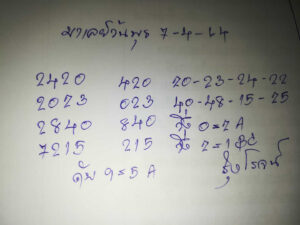 มาเลย์วันพุธ 7-4-64
2420 420 20-23-24-22
2023 023 40-48-15-25
2840 840 0=2A
7215 215 2=1
ดับ 9=5A รุ่งโรจน์